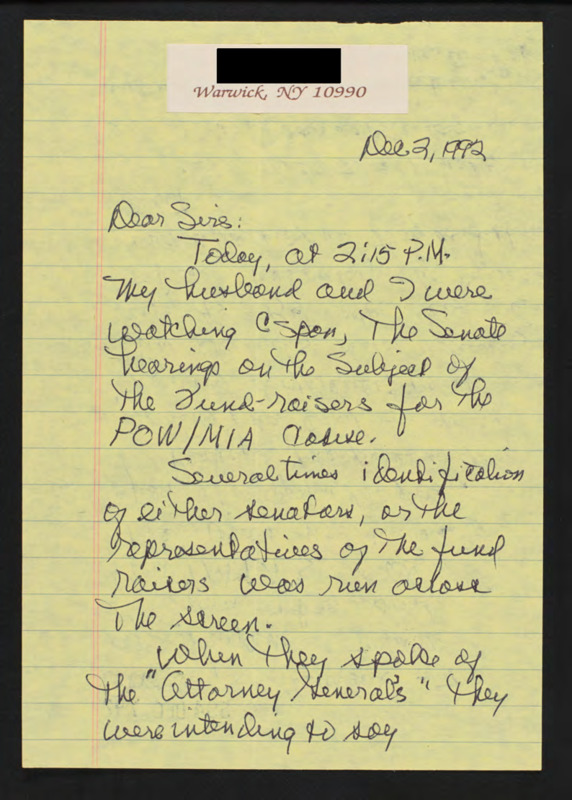 Warwick, NY 10990
Dec 2, 1992
Dear Sirs:
Today, at 2:15 P.M.
My husband and I were
watching C Span, The Senate
hearings on the Subject of
the Fund-raisers for the
POW/MIA Cause.
Several times identification
of either senators, or the
representatives of the fund
raisers was run across
the screen.
When they spoke of
the "Attorney Generals" they
were intending to say